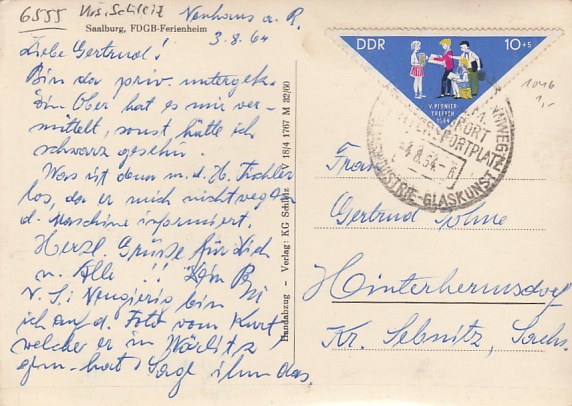 6555 Krs. Schleiz
Neuhaus a. R.
Saalburg, FDGB-Ferienheim
3.8.64
Liebe Gertrud!
Bin da priv. untergek.
Ein Ober hat es mir ver-
mittelt, sonst hätte ich
schwarz gesehn.
Was ist denn m. d. H. Tischler
los, da er mich nicht wegen
d. Maschine informiert.
Herzl. Grüße für Dich
u. Alle !! Dein
N. S: Neugierig bin
ich auf d. Foto vom Kurt,
welcher er in Görlitz
hat! Sagt ihm das.
Handabzug - Verlag: KG Schleiz V 18/4 1767 M 32/60
DDR 10+5
V. PIONIER-
TREFFEN
1964
1046
1,-
SPORTPLATZ
-4.8.64-6
GLASKUNST
Frau
Gertrud
Hinterhermsdorf
Kr. Sebnitz, Sachs.